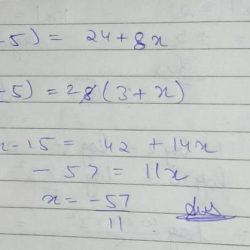 -5) = 24+8x
-5) = 28(3+x)
x-15 = 42 + 14x
-57 = 11x
x = -57
11
Ans